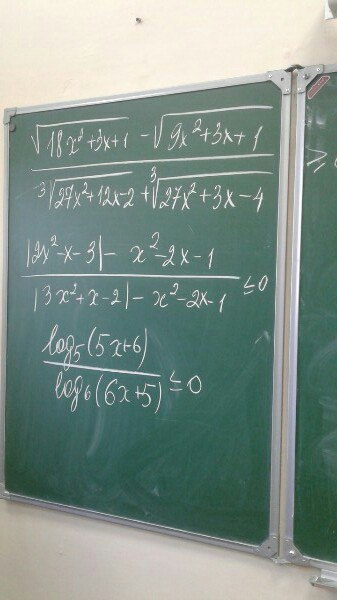 √(18x²+3x+1) - √(9x²+3x+1)
³√(27x²+12x-2) + ³√(27x²+3x-4)
|2x²-x-3| - x²-2x-1
|3x²+x-2| - x²-2x-1 ≤0
log₅(5x+6)
log₆(6x+5) ≤0
≥